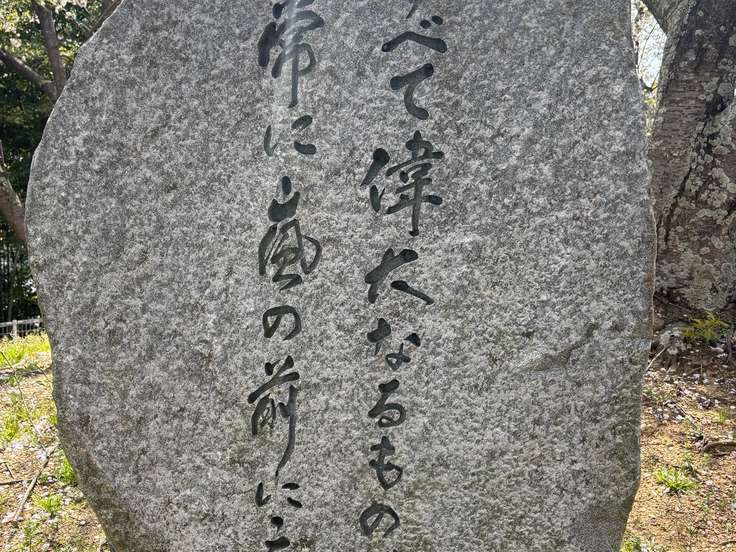 べて偉大なるもの
常に嵐の前に